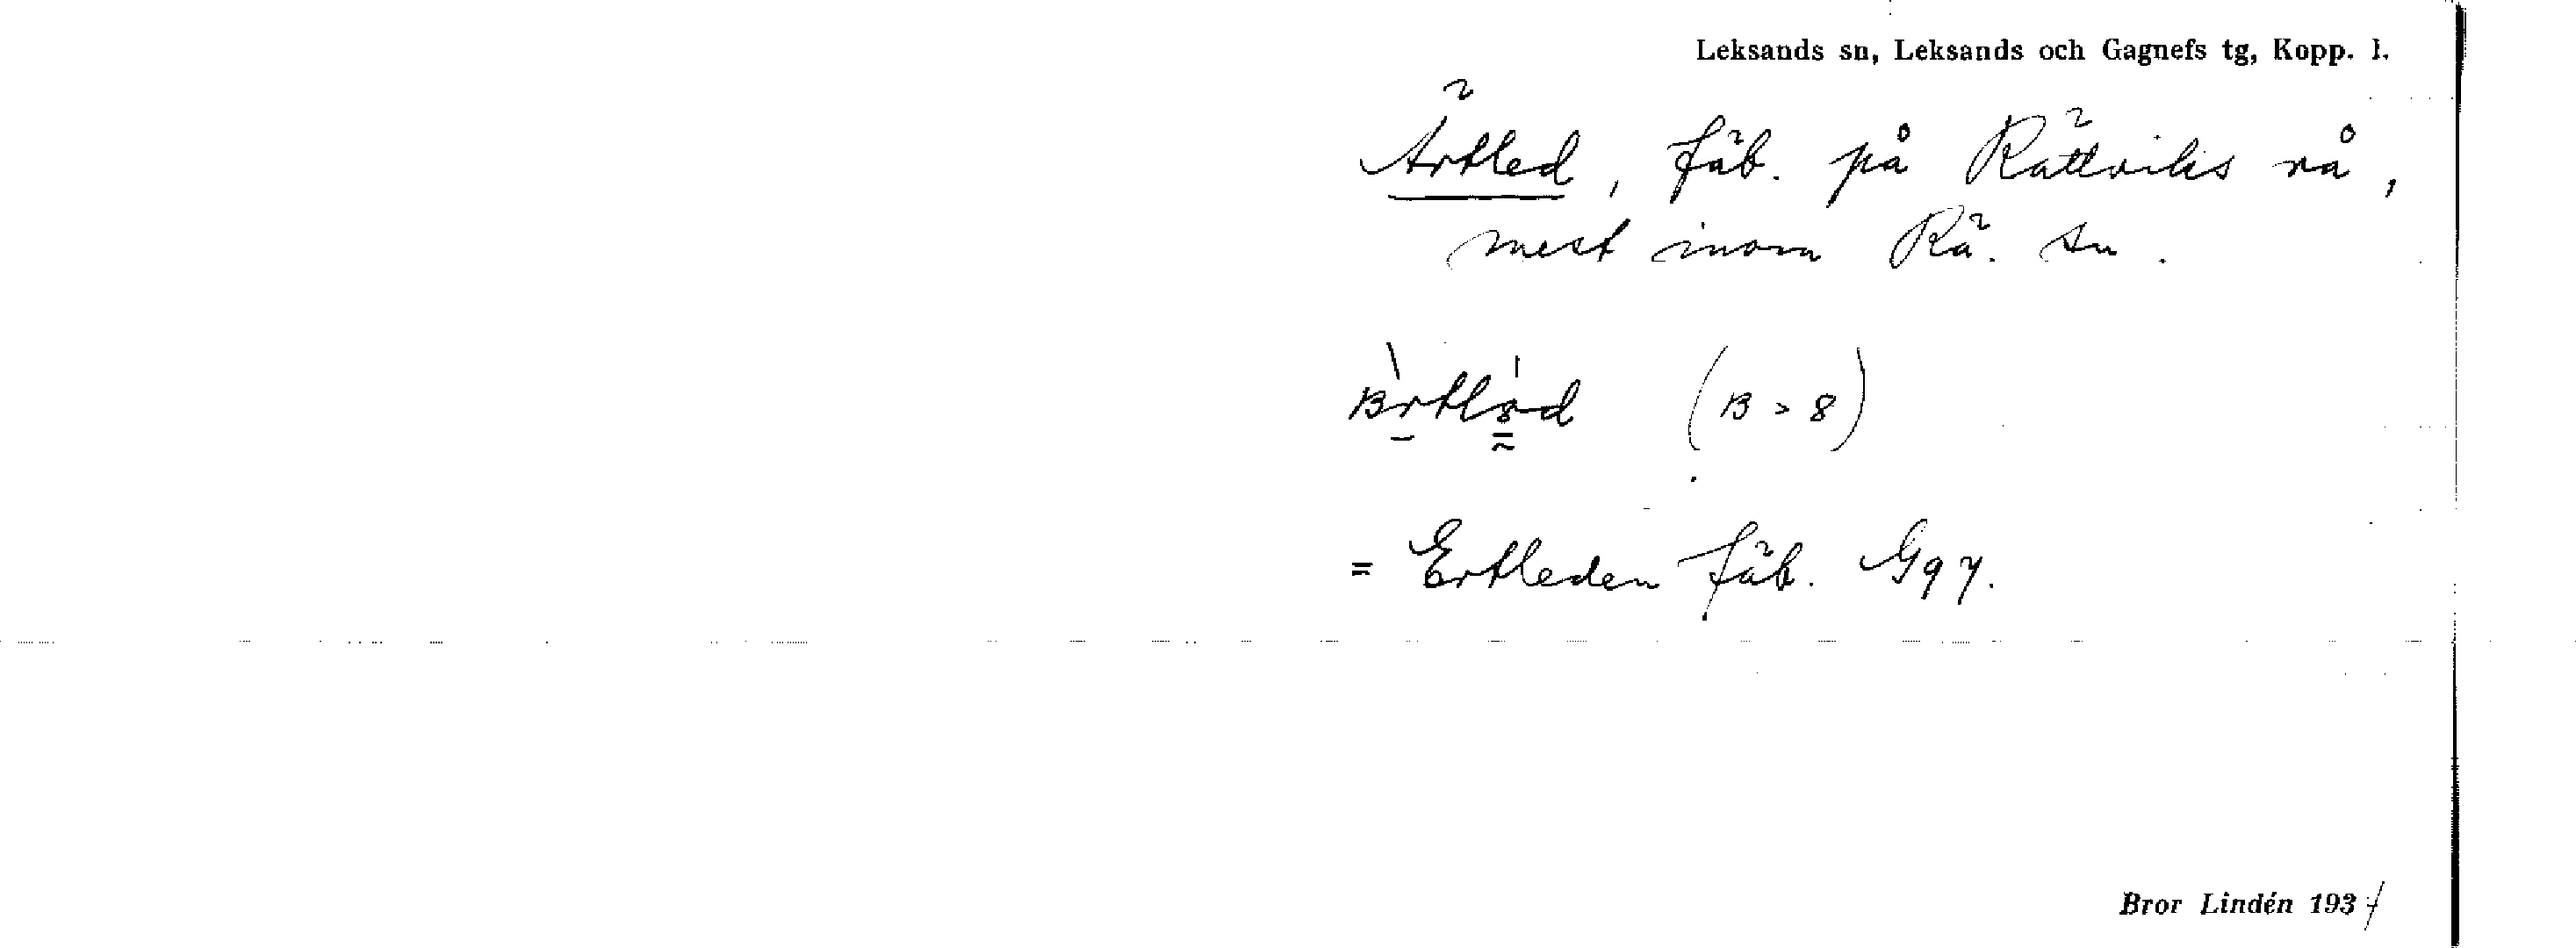 Leksands sn, Leksands och Gagnefs tg, Kopp. l.
Ärtled, fäb. på Rättviks rå,
mest inom Rä. sn.
(B > 8)
= Ertleden fäb. Gg 7.
Bror Lindén 193